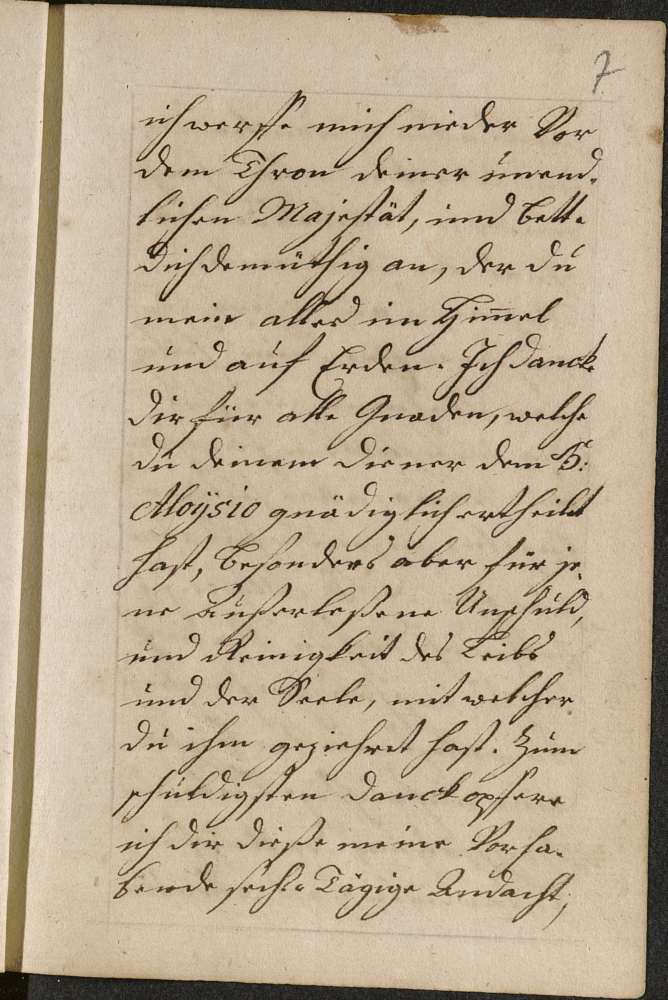 7
ich werffe mich nieder Vor
dem Thron deiner unend-
lichen Majestät, und bette
dich demüthig an, der du
mein alles im Himel
und auf Erden. Ich dancke
dir für alle Gnaden, welche
du deinem diener dem H:
Aloÿsio gnädiglich ertheilet
hast, besonders aber für je-
ne außerleßene Unschuld,
und Reinigkeit des Leibs
und der Seele, mit welcher
du ihm geziehret hast. Zum
schuldigsten danckopfere
ich dir dieße meine Vorha-
bende sechs Tägige Andacht,